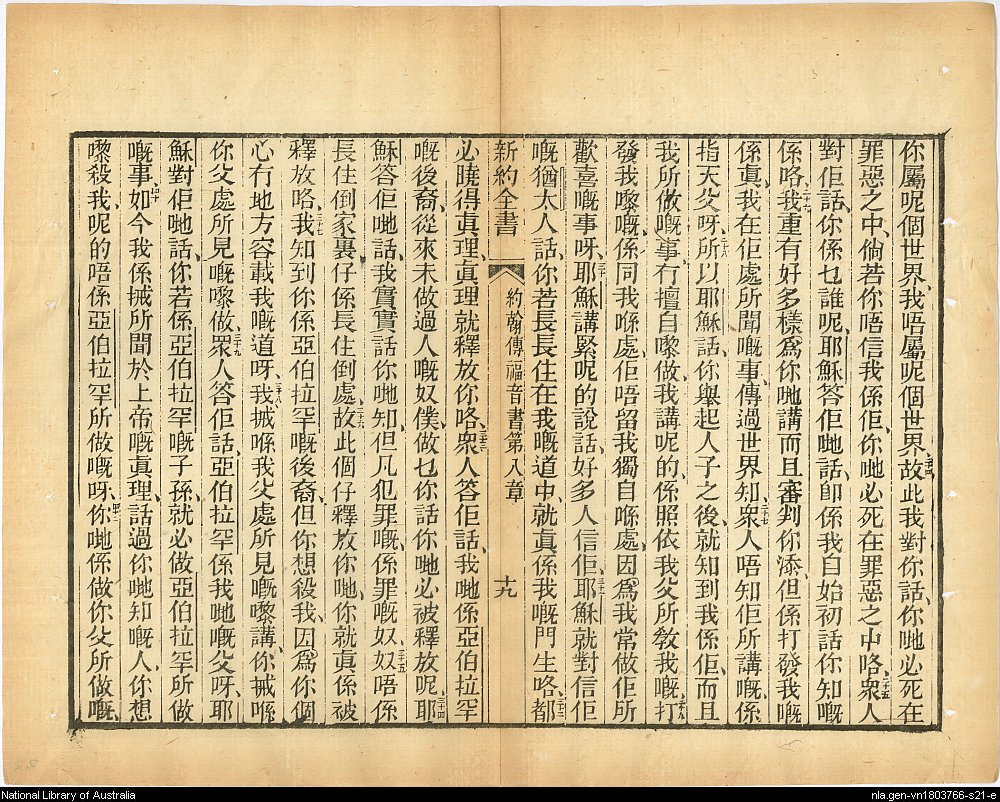 你屬呢個世界、我唔屬呢個世界、二十四故此我對你話、你哋必死在
罪惡之中、倘若你唔信我係佢、你哋必死在罪惡之中咯、二十五衆人
對佢話、你係乜誰呢、耶穌答佢哋話、卽係我自始初話你知嘅
係咯、二十六我重有好多樣、爲你哋講而且審判你添、但係打發我嘅
係眞、我在佢處所聞嘅事、傳過世界知、二十七衆人唔知佢所講嘅、係
指天父呀、二十八所以耶穌話、你舉起人子之後、就知到我係佢、而且
我所做嘅事、冇擅自嚟做、我講呢的、係照依我父所敎我嘅、二十九打
發我嚟嘅係同我喺處、佢唔留我獨自喺處、因爲我常做佢所
歡喜嘅事呀、三十耶穌講緊呢的說話、好多人信佢、三十一耶穌就對信佢
嘅猶太人話、你若長長住在我嘅道中、就眞係我嘅門生咯、三十二都
新約全書 約翰傳福音書第八章 十九
必曉得眞理、眞理就釋放你咯、三十三衆人答佢話、我哋係亞伯拉罕
嘅後裔、從來未做過人嘅奴僕、做乜你話你哋必被釋放呢、三十四耶
穌答佢哋話、我實實話你哋知、但凡犯罪嘅、係罪嘅奴、三十五奴唔係
長住倒家裏、仔係長住倒處、三十六故此個仔釋放你哋、你就眞係被
釋放咯、三十七我知到你係亞伯拉罕嘅後裔、但你想殺我、因爲你個
心冇地方容載我嘅道呀、三十八我𠶧喺我父處所見嘅嚟講、你𠶧喺
你父處所見嘅嚟做、三十九衆人答佢話、亞伯拉罕係我哋嘅父呀、耶
穌對佢哋話、你若係亞伯拉罕嘅子孫、就必做亞伯拉罕所做
嘅事、四十如今我係𠶧所聞於上帝嘅眞理、話過你哋知嘅人、你想
嚟殺我、呢的唔係亞伯拉罕所做嘅呀、四十一你哋係做你父所做嘅、
National Library of Australia
nla.gen-vn1803766-s21-e